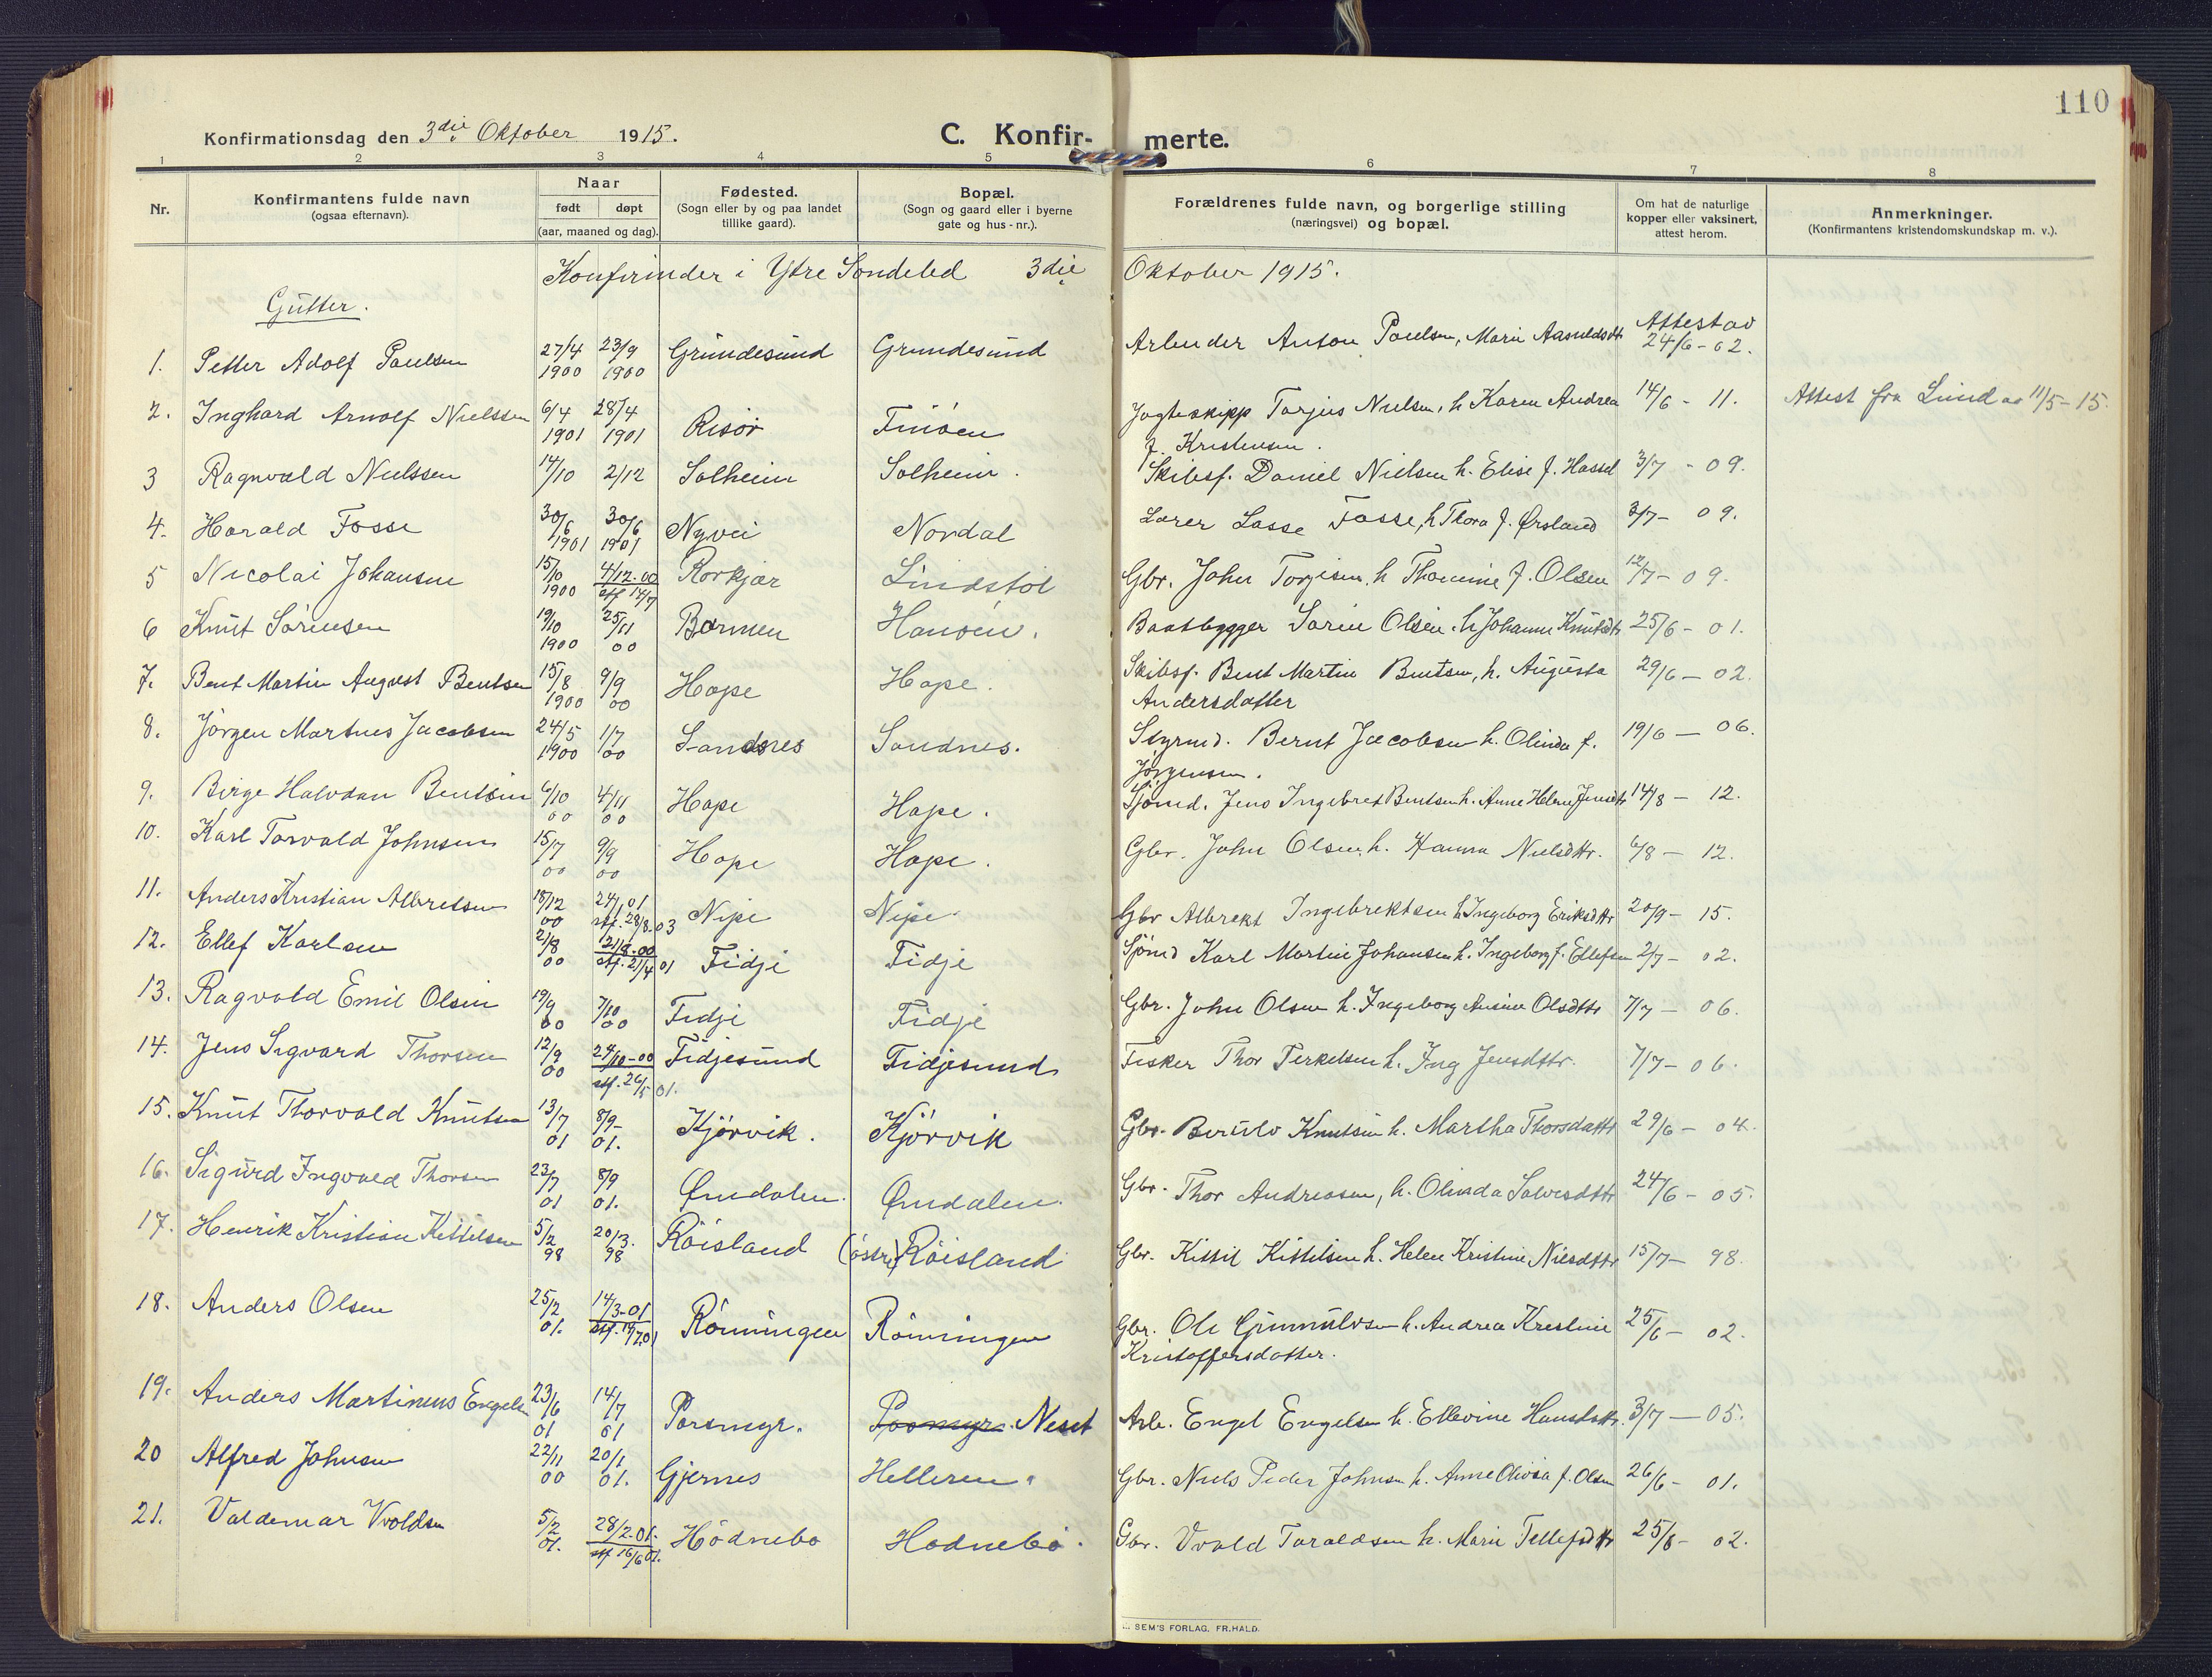 110
Konfirmationsdag den 3die Oktober 1915.
C. Konfir- merte.
1 2 3 4 5 6 7 8
Nr. Konfirmantens fulde navn (ogsaa efternavn). Naar født døpt (aar, maaned og dag). Fødested. (Sogn eller by og paa landet tillike gaard). Bopæl. (Sogn og gaard eller i byerne gate og hus-nr.). Forældrenes fulde navn, og borgerlige stilling (næringsvei) og bopæl. Om hat de naturlige kopper eller vaksinert, attest herom. Anmerkninger. (Konfirmantens kristendomskundskap m. v.).
Konfirmder i Ytre Söndeled 3die Oktober 1915.
Gutter.
1. Petter Adolf Paulsen 27/4 1900 23/9 1900 Grundesund Grundesund Arbeider Anton Paulsen, Marie Aasuldsdtr Attest av 24/6-02.
2. Inghard Arnolf Nielssen 6/4 1901 28/4 1901 Risör Finöen Jagteskipp Tarjus Nielsen, h Karen Andrea f. Kristensen. 14/6 - 11. Attest fra Lund av 11/5-15.
3 Ragnvald Nielssen 14/10 2/12 Solheim Solheim. Skibsf. Daniel Nielsen h. Elise f. Hassel 3/7 - 09.
4. Harald Fosse 30/6 1901 30/6 1901 Nyvei Nordal Lærer Lasse Fosse, h Thora f. Ørsland 3/7 - 09.
5 Nicolai Johansen 15/10 1900 4/12-00 stf 14/7 Rørkjær Lindstöl Gbr. John Torjusen, h Thomine f. Olsen 12/7 - 09.
6 Knut Sörensen 19/10 1900 25/11 00 Barmen Hansön. Baatbygger Sören Olsen, h Johanne Knutsdtr 25/6 - 01.
7. Bent Martin August Bentsen 15/8 1900 9/9 00 Hope Hope. Skibsf. Bent Martin Bentsen, h. Augusta Andersdatter 29/6 - 02.
8. Jörgen Martines Jacobsen 24/5 1900 1/7 00 Sandsnes Sandnes. Styrmd. Bernt Jacobsen h. Olinda f. Jörgensen. 19/6 - 06.
9. Birge Halvdan Bentsen 6/10 00 4/11 00 Hope Hope. Sjömd. Jens Ingebret Bentsen h. Anne Helene Jensdtr 14/8 - 12.
10. Karl Torvald Johnsen 15/7 00 9/9 00 Hope Hope. Gbr. John Olsen, h. Hanna Nielsdtr. 6/8 - 12.
11. Anders Kristian Albretsen 18/12 00 24/1 01 stf. 28/8.03 Nipe Nipe. Gbr Albrekt Ingebrektsen h Ingeborg Eriksdtr 20/9 - 15.
12. Ellef Karlsen 21/8 00 21/8-00 stf. 21/4 01 Fidje Fidje Sjömd Karl Martin Johansen h. Ingeborg f. Ellefsen 2/7 - 02.
13. Ragvald Emil Olsen 19/9 00 7/10 00 Fidje Fidje Gbr. John Olsen h. Ingeborg Ausine Olsdtr 7/7 - 06.
14. Jens Sigvard Thorsen 12/9 00 24/10-00 stf. 26/5 01. Fidjesund Fidjesund Fisker Thor Terkelsen h. Ing Jensdtr. 7/7 - 06.
15. Knut Thorvald Knutsen 13/7 01 8/9- 01. Kjörvik. Kjörvik Gbr. Berulv Knutsen h. Martha Thorsdattr 29/6 - 04.
16. Sigurd Ingvald Thorsen 23/7 01 8/9 01. Ørndalen. Ørndalen. Gbr. Thor Andreasen, h. Olinda Salvesdtr 24/6 - 05.
17. Henrik Kristian Kittilsen 5/2 98 20/3. 98 Röisland (östre) Röisland Gbr. Kittil Kittilsen h. Helene Kristine Nilsdtr 15/7 - 98.
18. Anders Olsen 25/2 01. 14/3-01 stf. 19/7.01 Rönningen Rönningen Gbr. Ole Gunnulvsen h. Andrea Kristine Kristoffersdatter. 25/6 - 02.
19. Anders Martinus Engelsen 23/6 01 14/7 01 Porsmyr. Posmyr. Neset Arb. Engel Engelsen h. Ellevine Hansdtr. 3/7 - 05.
20 Alfred Johnsen 22/11 00 20/1 01. Gjernes Helleren. Gbr. Niels Peder Johnsen h. Anne Olivia f. Olsen 26/6 - 01.
21. Valdemar Vvoldsen 5/2 01. 28/2.01. stf 16/6 01. Hödnebö Hödnebö. Gbr. Vvold Taraldsen h. Marie Tellefsdtr 25/6 - 02.
SEM'S FORLAG, FR.HALD.